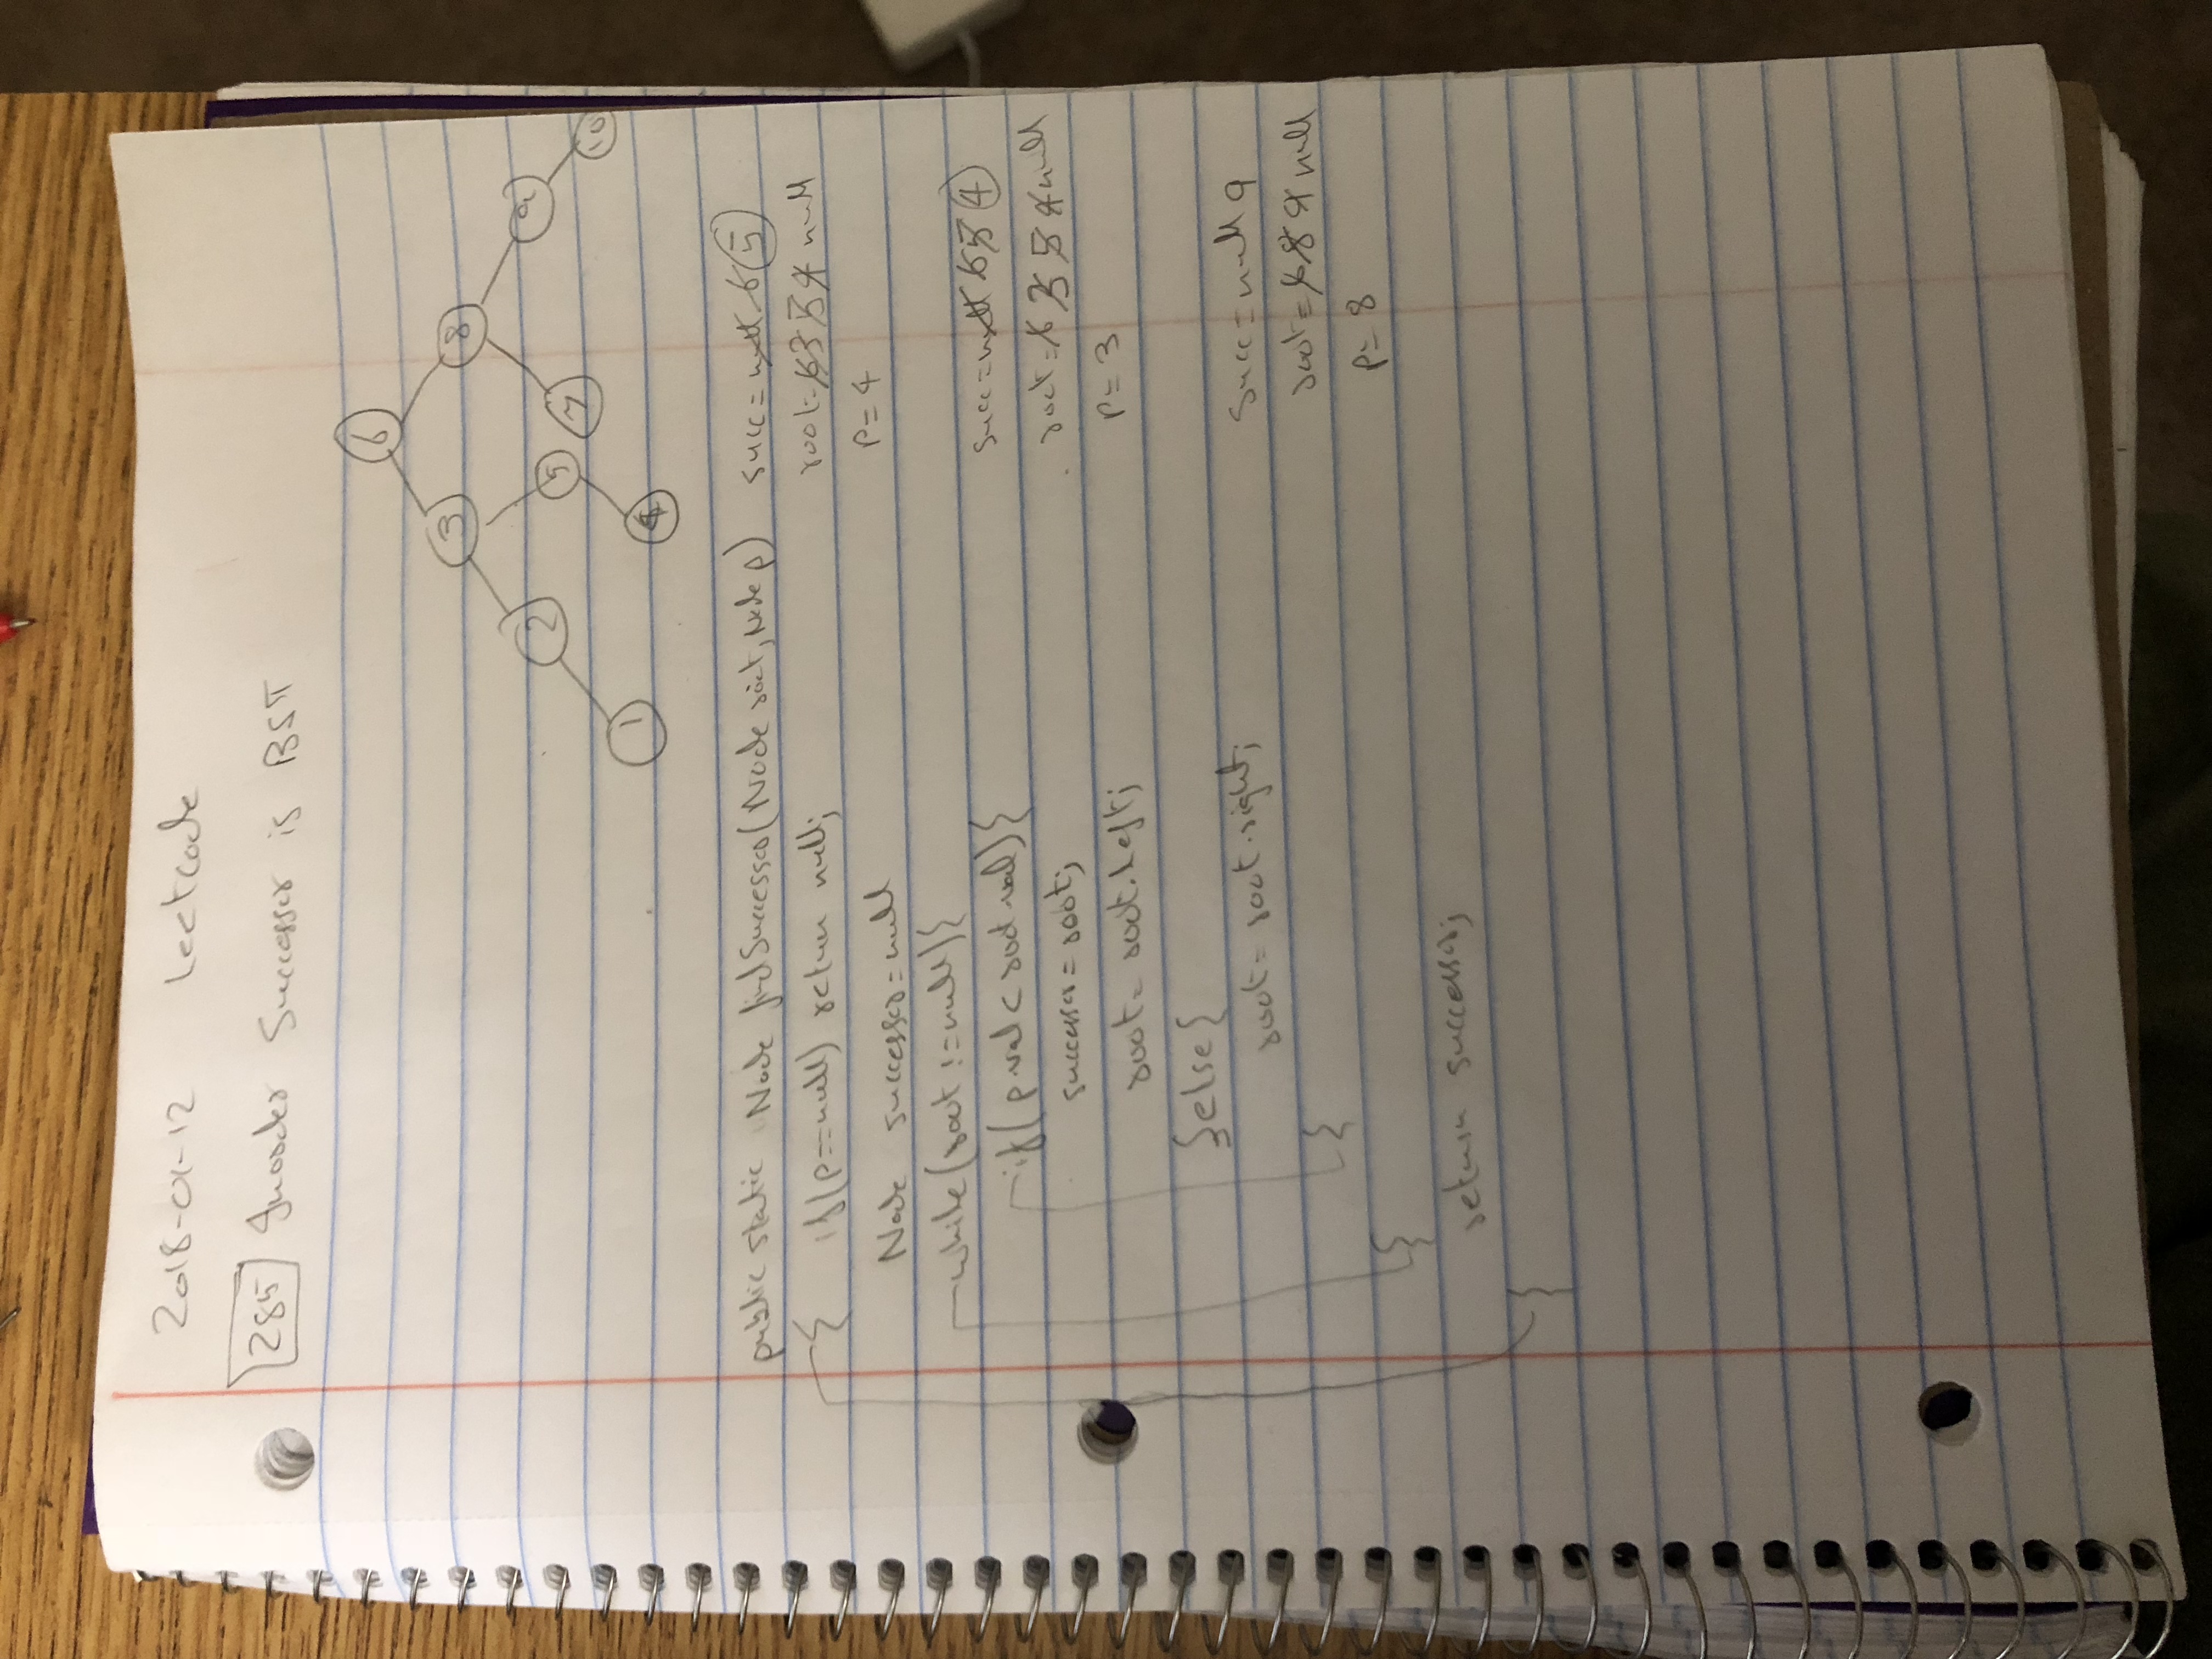 2018-01-12 Leetcode
285 Inorder Successor is BST
6
3 8
2 5 7 9
1 4 10
public static Node findSuccessor(Node root, Node p)
{ if(p==null) return null;
Node successor=null
while(root !=null){
if( p.val < root.val){
successor = root;
root = root.Left;
}else{
root = root.right;
}
}
return successor;
}
succ = null 6 5
root = 6 3 5 4 null
P = 4
succ = null 6 5 4
root = 6 3 5 4 null
P = 3
Succ = null 9
root = 6 8 9 null
P = 8